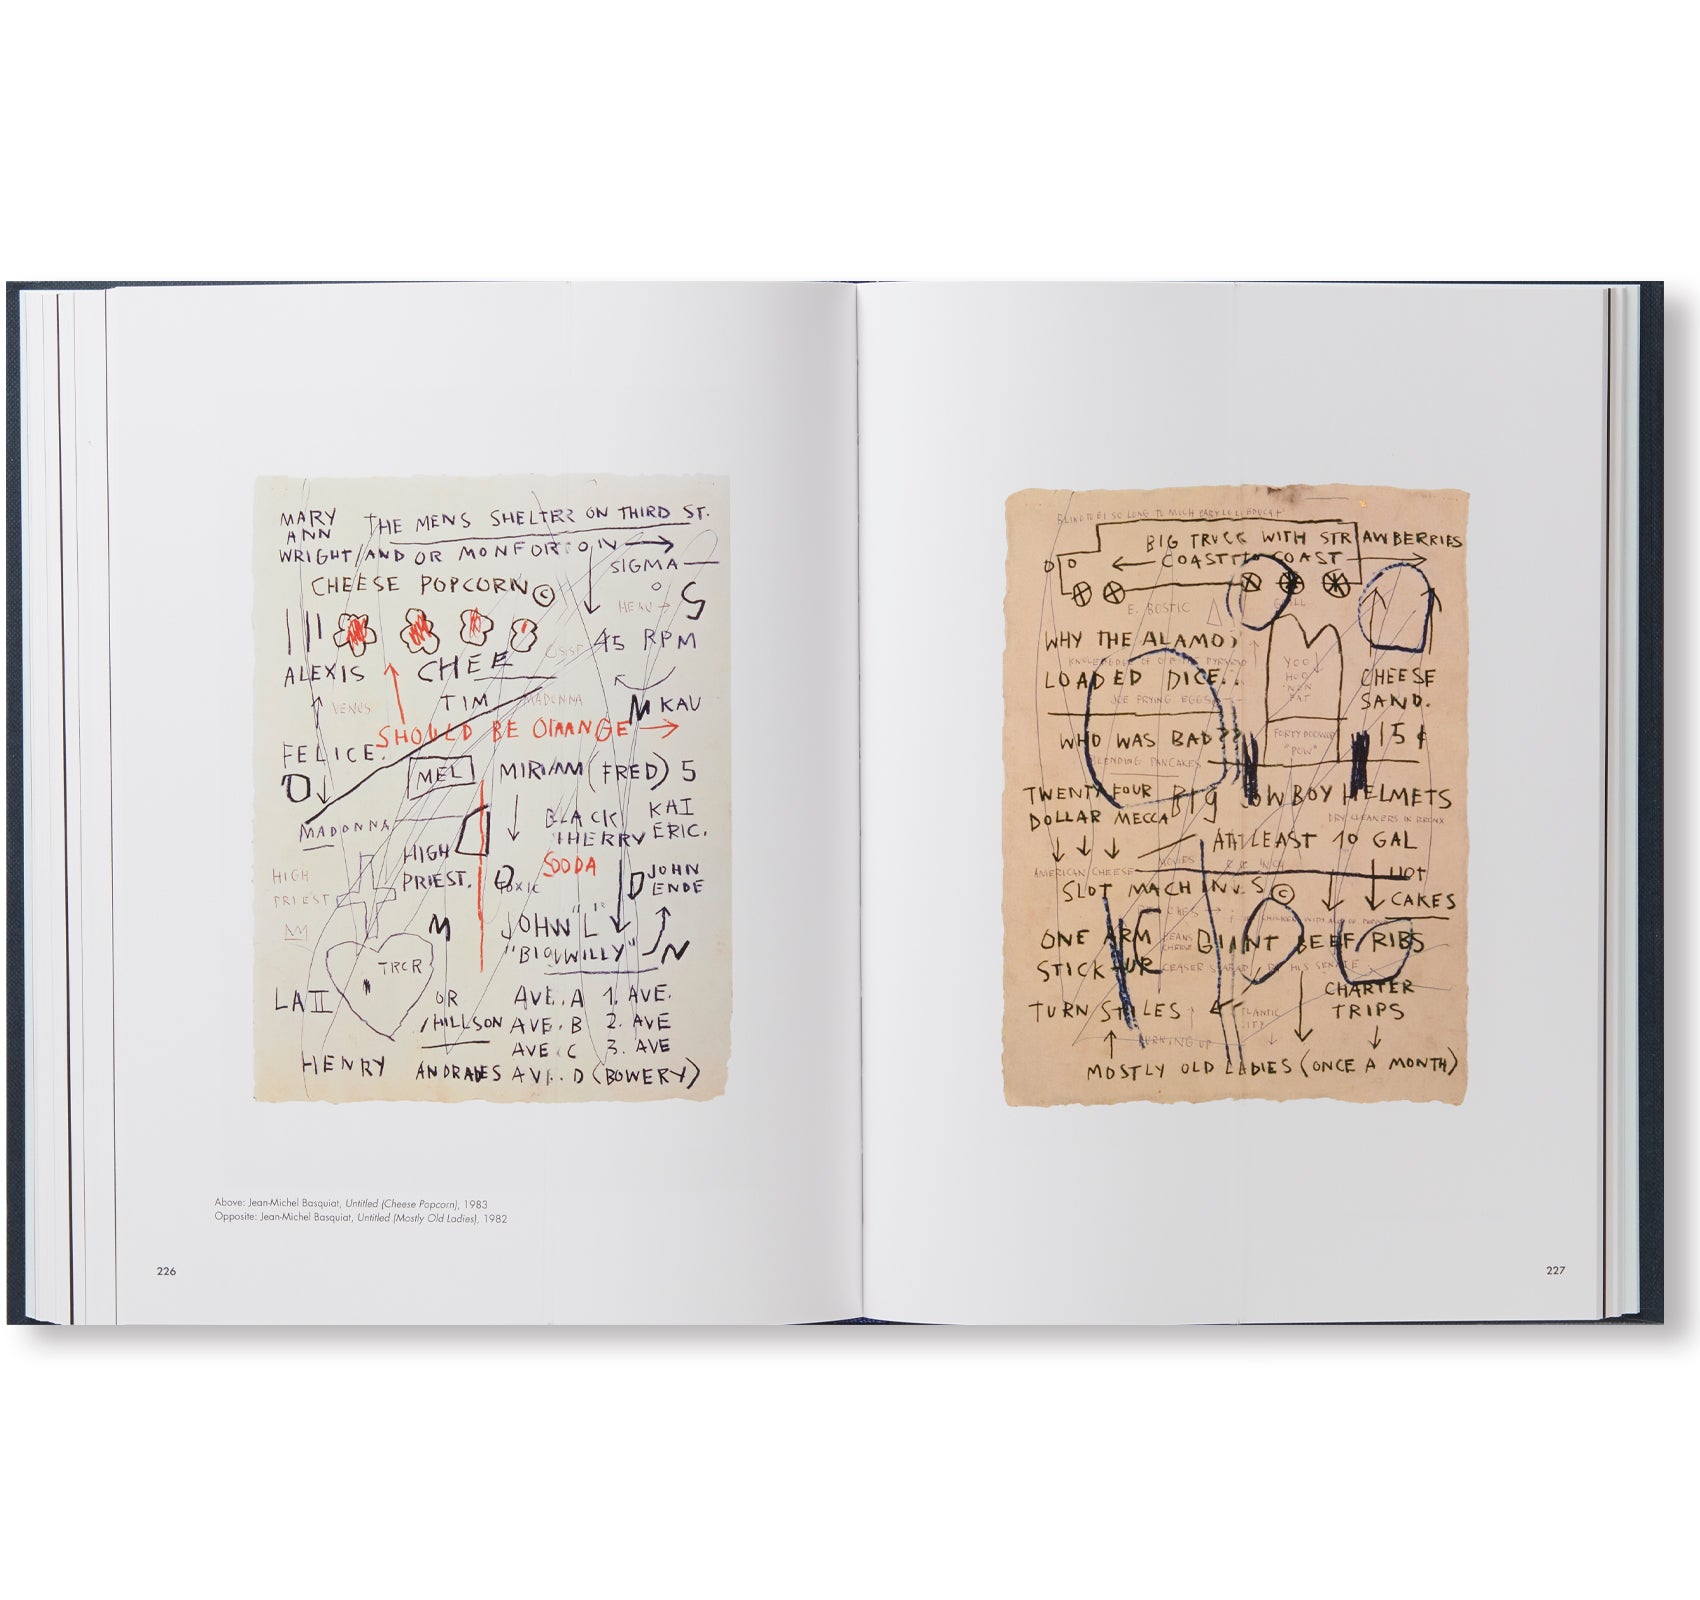 MARY
ANN
THE MENS SHELTER ON THIRD ST.
WRIGHT/AND OR MONFORTOIN
SIGMA
CHEESE POPCORN ©
HEAV S
45 RPM
ALEXIS CHEE
VENUS TIM MADONNA
M KAU
SHOULD BE ORANGE
FELICE.
D MEL MIRIAM (FRED) 5
MADONNA
BLACK KAI
CHERRY ERIC.
HIGH
PRIEST.
SODA
TOXIC
JOHN
ENDE
HIGH
PRIEST
M JOHN "L"
"BIGWILLY" N
TRCR
LA II
OR AVE. A 1. AVE.
HILLSON AVE. B 2. AVE
AVE C 3. AVE
HENRY ANDRADES AVE. D (BOWERY)
Above: Jean-Michel Basquiat, Untitled (Cheese Popcorn), 1983
Opposite: Jean-Michel Basquiat, Untitled (Mostly Old Ladies), 1982
226
BIG TRUCK WITH STRAWBERRIES
COAST TO COAST
E. BOSTIC
WHY THE ALAMO?
LOADED DICE..
JOE FRYING EGGS
YOO
HOO
CHEESE
SAND.
15¢
WHO WAS BAD??
"POW"
BLENDING PANCAKES
TWENTY FOUR
DOLLAR MECCA
BIG COWBOY HELMETS
DRY CLEANERS IN BRONX
AT LEAST 10 GAL
MOVIES
AMERICAN CHEESE
HOT
CAKES
SLOT MACHINES ©
ONE ARM
STICK-UP
GIANT BEEF RIBS
CHARTER
TRIPS
TURN STILES
BURNING UP
MOSTLY OLD LADIES (ONCE A MONTH)
227